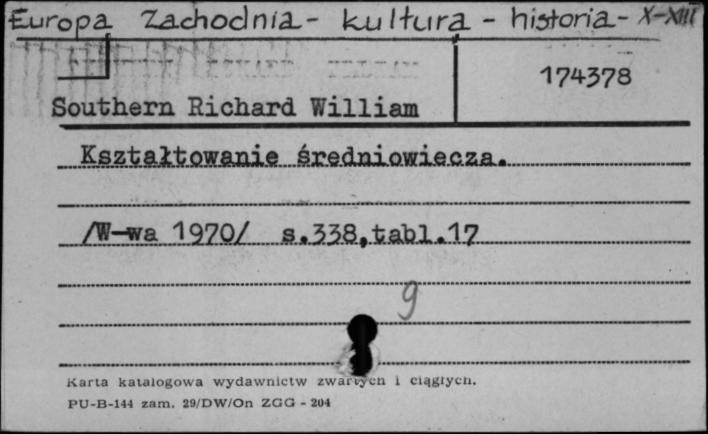 Europa Zachodnia - kultura - historia - X-XIII
174378
Southern Richard William
Kształtowanie średniowiecza.
/W-wa 1970/ s.338,tabl.17
g
Karta katalogowa wydawnictw zwartych i ciągłych.
PU-B-144 zam. 29/DW/On ZGG - 204